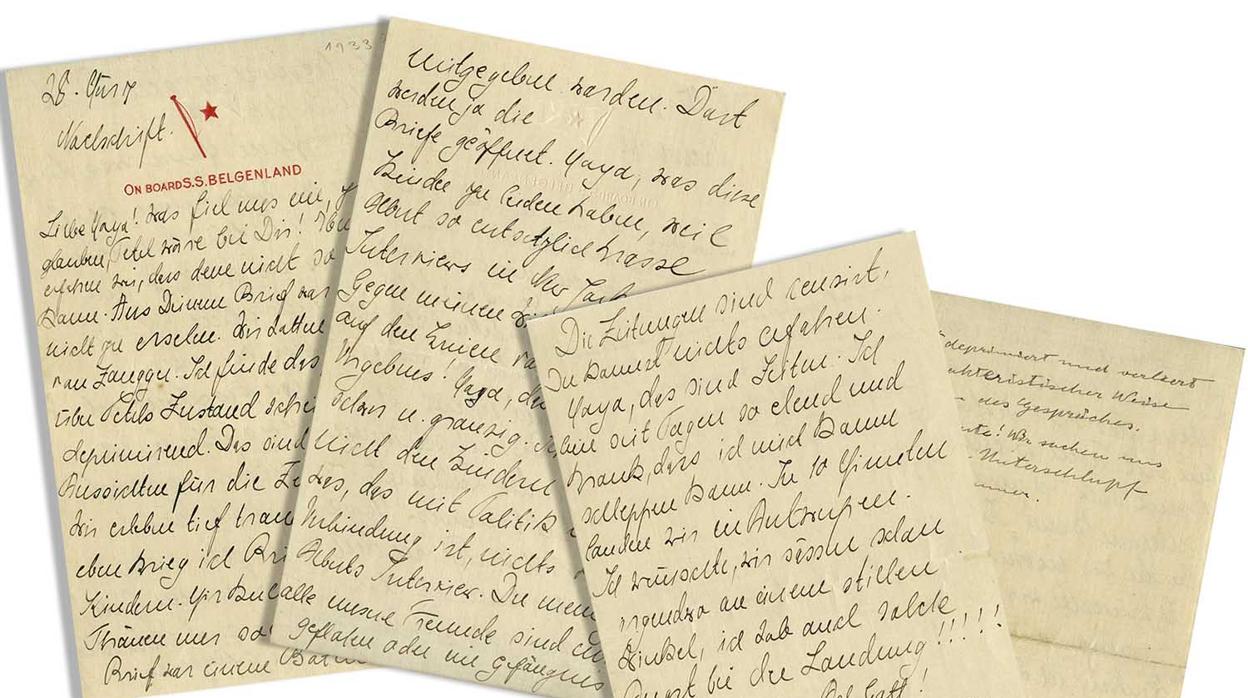 1933
28.
Nachschrift.
ON BOARD S.S. BELGENLAND
Liebe Maja! Was fiel uns ein, z
glauben, Tetel wäre bei Dir!
erfuhren wir, dass dem nicht so
kann. Aus Deinem Brief war
nicht zu ersehen. Wir hatten
von Zangger. Ich finde das
über Tetels Zustand
deprimirend. Das sind
Aussichten für die Zu
Wir erleben tief trau
eben krieg ich Bri
Kindern. Mir
Thränen
Brief war einem
mitgegeben worden. Dort
werden ja die
Briefe geöffnet. Maja, was diese
Kinder zu leiden haben, weil
Albert so entsetzlich krasse
Interviews in New York
Gegen meinen
auf den Knieen
Vergebens! Maja, da
schon u. grausig.
nicht den Kindern
das, das mit Politik
Verbindung ist, nichts
Alberts Interview. Die mein
alle unsere Freunde sind
geflohen oder im Gefängnis
Die Zeitungen sind censirt,
Du kannst nichts erfahren.
Maja, das sind Zeiten. Ich
bin seit Tagen so elend und
krank, dass ich mich kaum
schleppen kann. In 10 Minuten
landen wir in Antwerpen.
Ich wünschte, wir sässen schon
irgendwo an einem stillen
Winkel, ich hab auch solche
Angst bei der Landung!!!!!
Gott!
deprimiert und verleert
akteristischer Weise
des Gespräches.
Wir suchen uns
Unterschlupf